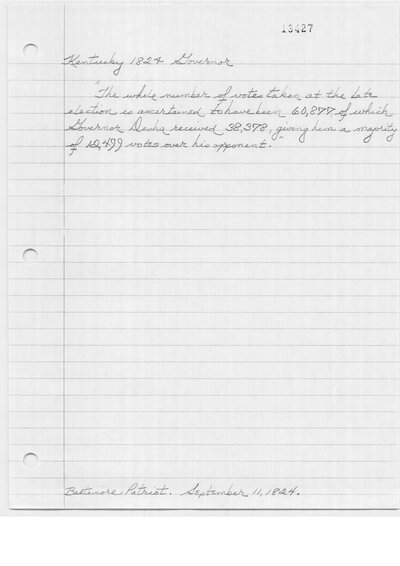 23427
Kentucky 1824 Governor
"The whole number of votes taken at the late
election is ascertained to have been 60,877 of which
Governor Desha received 38,378, giving him a majority
of 12,499 votes over his opponent."
Baltimore Patriot. September 11, 1824.